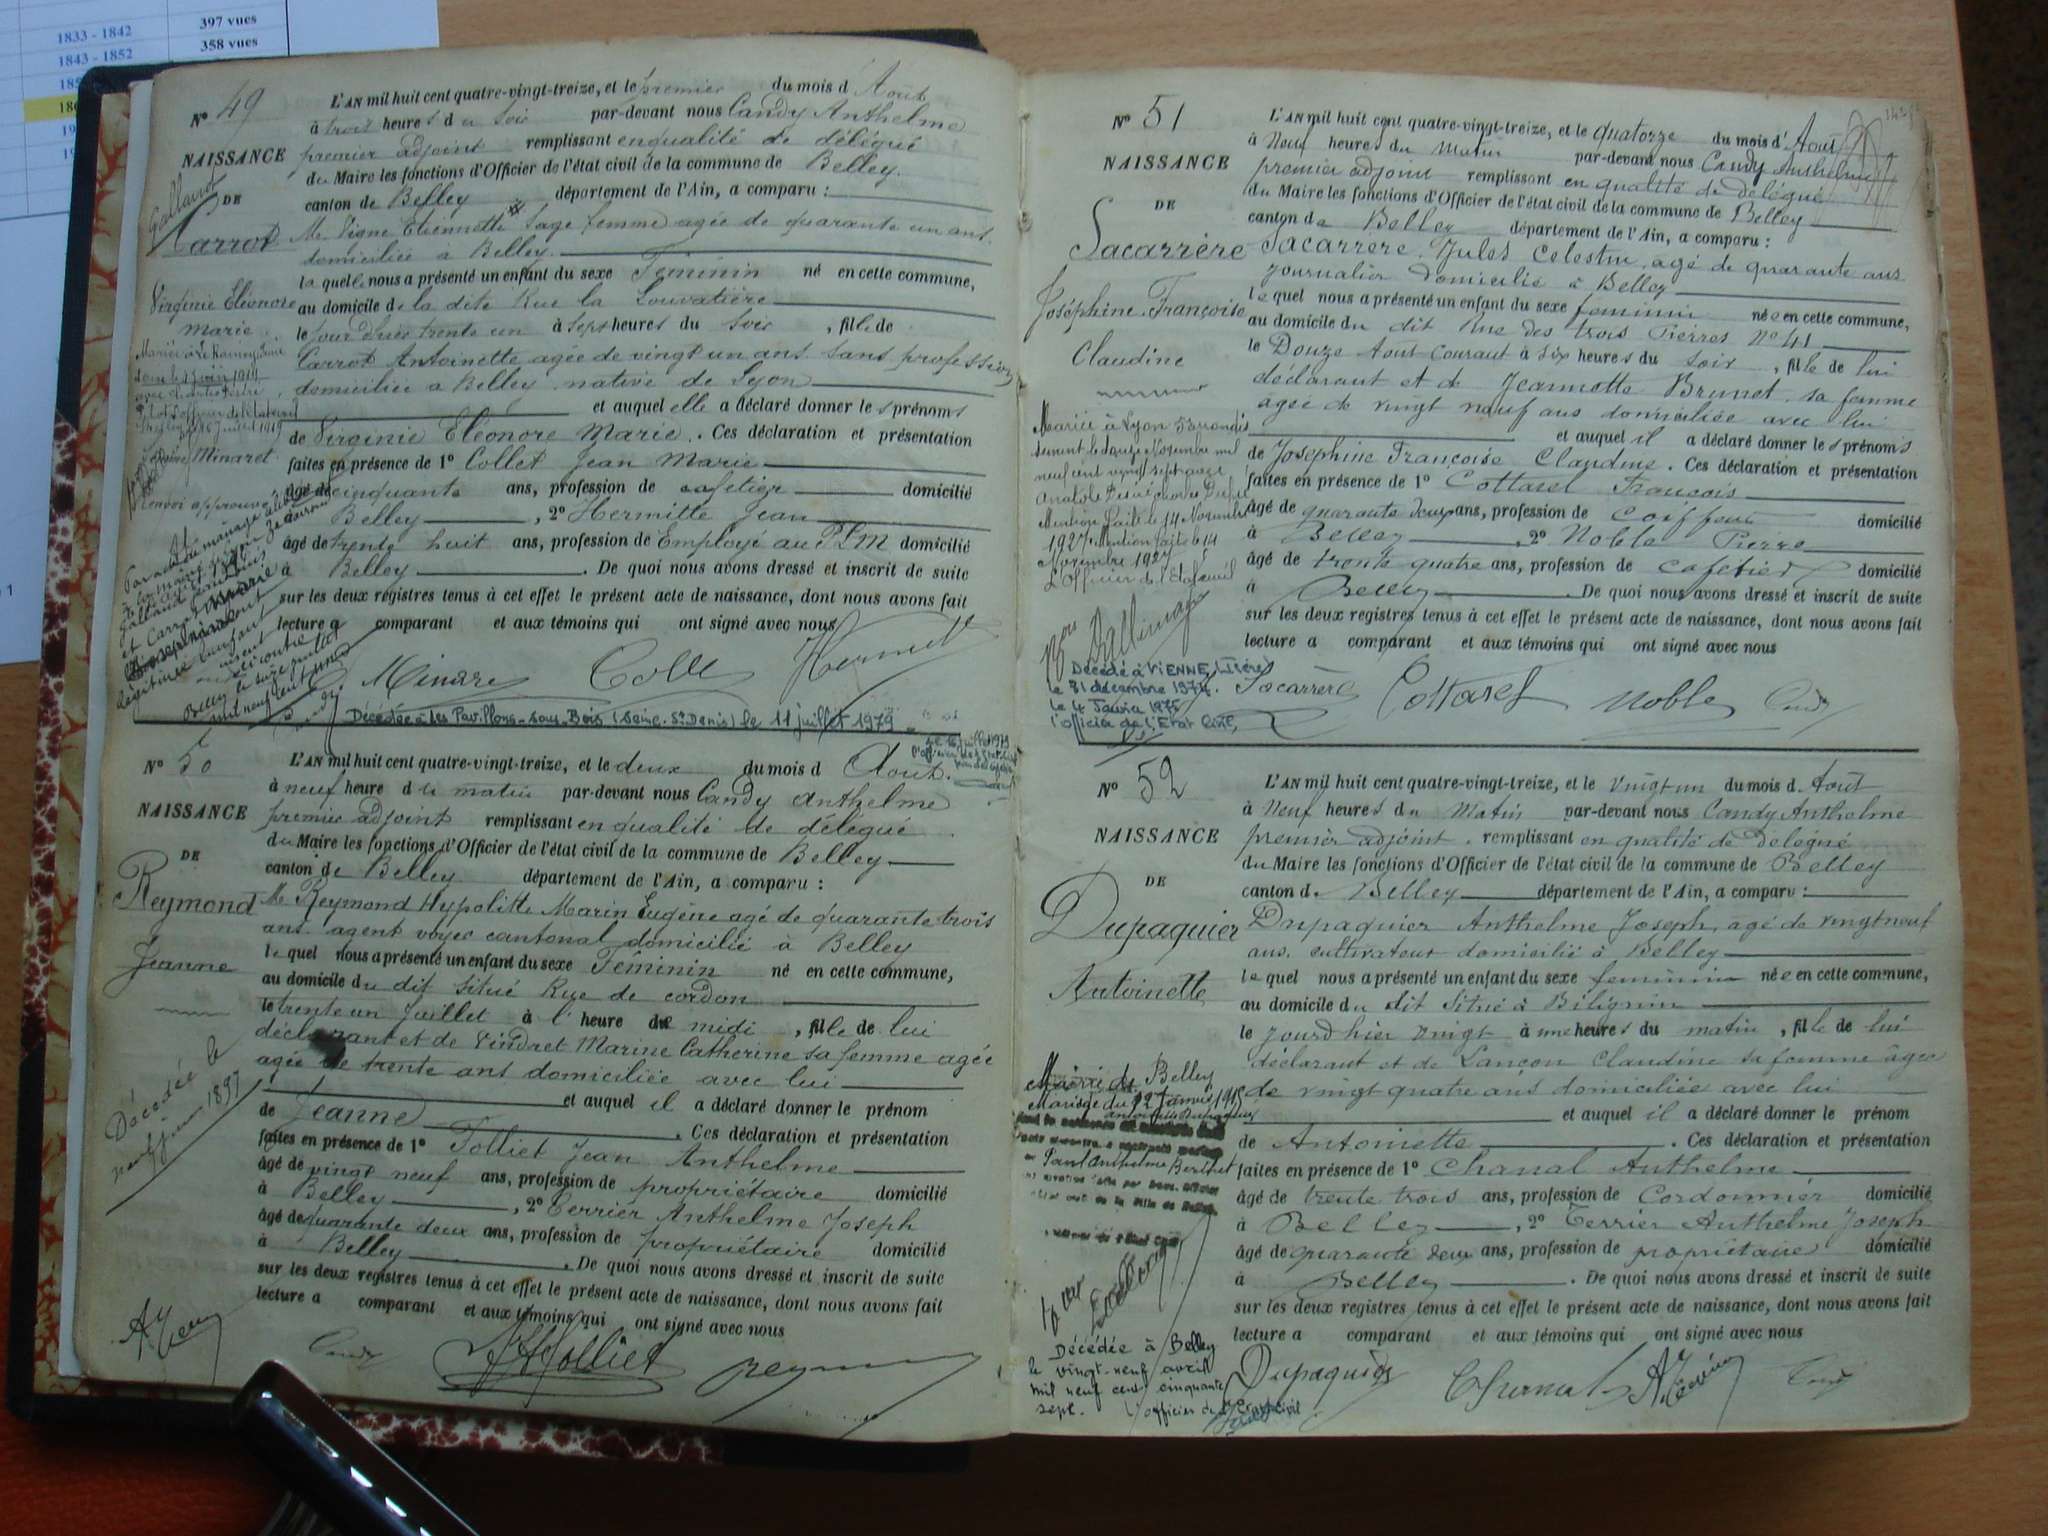 397 vues
1833 - 1842
358 vues
1843 - 1852
N° 49
NAISSANCE
DE
Carrot
Virginie Eléonore
Marie
L'AN mil huit cent quatre-vingt-treize, et le premier du mois d'Août
à trois heures du soir par-devant nous Candy Anthelme
premier adjoint remplissant en qualité de délégué
du Maire les fonctions d'Officier de l'état civil de la commune de Belley.
canton de Belley département de l'Ain, a comparu :
Me Vigne Etiennette Sage femme agée de quarante un ans
domiciliée a Belley.
la quelle nous a présenté un enfant du sexe Féminin né en cette commune,
au domicile de la dite Rue la
le jour d'hier trente un à sept heures du soir, fille de
Carrot Antoinette agée de vingt un ans sans profession
domiciliée a Belley native de Lyon
et auquel elle a déclaré donner les prénoms
de Virginie Eléonore Marie. Ces déclaration et présentation
faites en présence de 1° Collet Jean Marie
âgé de cinquante ans, profession de cafetier domicilié
à Belley, 2° Hermitte Jean
âgé de trente huit ans, profession de Employé au PLM domicilié
à Belley. De quoi nous avons dressé et inscrit de suite
sur les deux registres tenus à cet effet le présent acte de naissance, dont nous avons fait
lecture a comparant et aux témoins qui ont signé avec nous
Décédée à Les Pavillons-sous-Bois (Seine-St-Denis) le 11 juillet 1979
N° 50
NAISSANCE
DE
Reymond
Jeanne
Décédée le
neuf juin 1897
L'AN mil huit cent quatre-vingt-treize, et le deux du mois d Août.
à neuf heure du matin par-devant nous Candy Anthelme
premier adjoint remplissant en qualité de délégué
du Maire les fonctions d'Officier de l'état civil de la commune de Belley
canton de Belley département de l'Ain, a comparu :
Me Reymond Hypolitte Marin Eugène agé de quarante trois
ans agent voyer cantonal domicilié à Belley
le quel nous a présenté un enfant du sexe Féminin né en cette commune,
au domicile du dit situé Rue de cordon
le trente un Juillet à l'heure de midi, fille de lui
déclarant et de Vindret Marine Catherine sa femme agée
de trente ans domiciliée avec lui
et auquel il a déclaré donner le prénom
de Jeanne. Ces déclaration et présentation
faites en présence de 1° Tolliet Jean Anthelme
âgé de vingt neuf ans, profession de propriétaire domicilié
à Belley, 2° Terrier Anthelme Joseph
âgé de quarante deux ans, profession de propriétaire domicilié
à Belley. De quoi nous avons dressé et inscrit de suite
sur les deux registres tenus à cet effet le présent acte de naissance, dont nous avons fait
lecture a comparant et aux témoins qui ont signé avec nous
N° 51
NAISSANCE
DE
Sacarrère
Joséphine Françoise
Claudine
L'AN mil huit cent quatre-vingt-treize, et le quatorze du mois d'Août
à Neuf heures du Matin par-devant nous Candy Anthelme
premier adjoint remplissant en qualité de délégué
du Maire les fonctions d'Officier de l'état civil de la commune de Belley
canton de Belley département de l'Ain, a comparu :
Sacarrère Jules Celestin agé de quarante ans
journalier domicilié à Belley
le quel nous a présenté un enfant du sexe feminin née en cette commune,
au domicile du dit Rue des trois Pierres N° 41
le Douze Août courant à six heures du soir, fille de lui
déclarant et de Jeannette Brunet sa femme
agée de vingt neuf ans domiciliée avec lui
et auquel il a déclaré donner les prénoms
de Joséphine Françoise Claudine. Ces déclaration et présentation
faites en présence de 1° Cottarel François
âgé de quarante deux ans, profession de coiffeur domicilié
à Belley, 2° Noble Pierre
âgé de trente quatre ans, profession de cafetier domicilié
à Belley. De quoi nous avons dressé et inscrit de suite
sur les deux registres tenus à cet effet le présent acte de naissance, dont nous avons fait
lecture a comparant et aux témoins qui ont signé avec nous
Décédé à VIENNE, Isère
le 31 décembre 1974.
le 4 Janvier 1975
l'officier de l'Etat Civil,
Sacarrère Cottarel Noble Candy
N° 52
NAISSANCE
DE
Dupaquier
Antoinette
L'AN mil huit cent quatre-vingt-treize, et le vingt un du mois d Août
à Neuf heures du Matin par-devant nous Candy Anthelme
premier adjoint remplissant en qualité de délégué
du Maire les fonctions d'Officier de l'état civil de la commune de Belley
canton de Belley département de l'Ain, a comparu :
Dupaquier Anthelme Joseph, agé de vingt neuf
ans, cultivateur domicilié à Belley
le quel nous a présenté un enfant du sexe feminin née en cette commune,
au domicile du dit situé à Bilignin
le jour d'hier vingt à une heures du matin, fille de lui
déclarant et de Lançon Claudine sa femme agée
de vingt quatre ans domiciliée avec lui
et auquel il a déclaré donner le prénom
de Antoinette. Ces déclaration et présentation
faites en présence de 1° Chanal Anthelme
âgé de trente trois ans, profession de Cordonnier domicilié
à Belley, 2° Terrier Anthelme Joseph
âgé de quarante deux ans, profession de propriétaire domicilié
à Belley. De quoi nous avons dressé et inscrit de suite
sur les deux registres tenus à cet effet le présent acte de naissance, dont nous avons fait
lecture a comparant et aux témoins qui ont signé avec nous
Décédée à Belley
le vingt-neuf avril
mil neuf cent cinquante
sept. L'officier de l'Etat civil